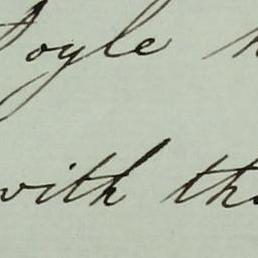 oyle
with th